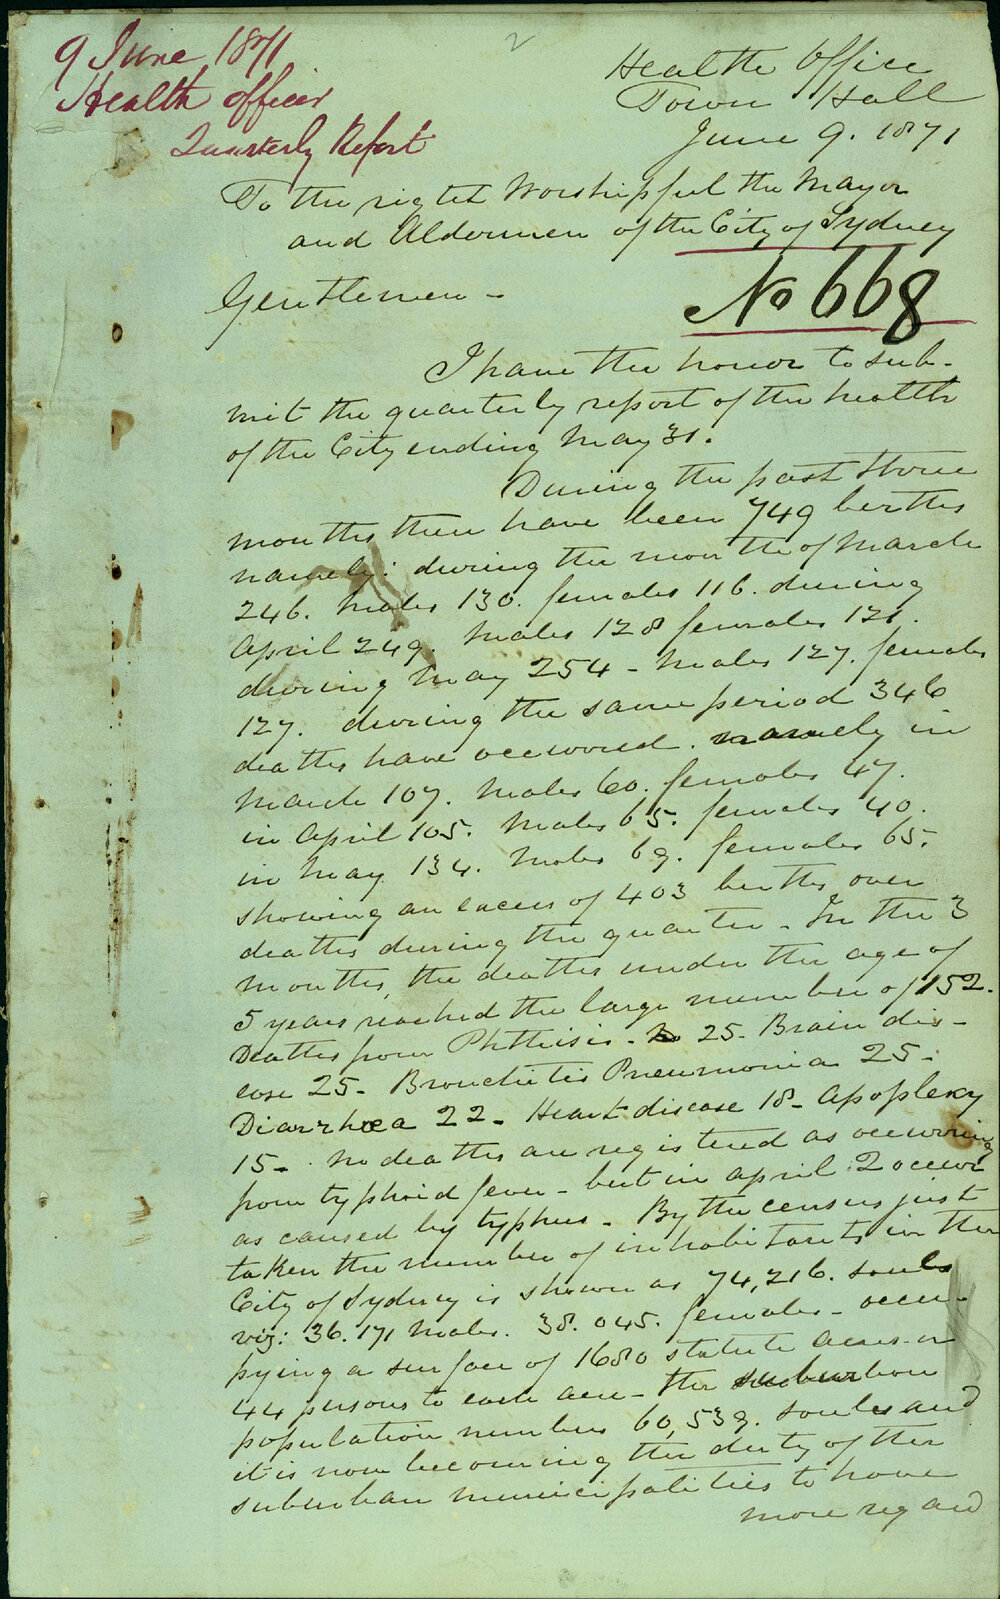 2
9 June 1871
Health officer
Quarterly Report
Health Office
Town Hall
June 9. 1871
To the right Worshipful the Mayor
and Aldermen of the City of Sydney
No 668
Gentlemen -
I have the honor to sub-
mit the quarterly report of the health
of the City ending May 31.
During the past three
months there have been 749 births
namely: during the month of March
246. Males 130. females 116. during
April 249. Males 128 females 121.
during May 254 - Males 127. females
127. during the same period 346
deaths have occurred. namely in
March 107. Males 60. females 47.
in April 105. Males 65. females 40.
in May 134. Males 69. females 65.
showing an excess of 403 births over
deaths during the quarter - In the 3
months, the deaths under the age of
5 years reached the large number of 152.
Deaths from Phthisis - 25 - Brain dis-
ease 25 - Bronchitis Pneumonia 25 -
Diarrhœa 22 - Heart disease 18 - Apoplexy
15 - No deaths are registered as occurring
from typhoid fever - but in April 2 occur
as caused by typhus - By the census just
taken the number of inhabitants in the
City of Sydney is shown as 74,216. souls
viz: 36.171 Males. 38.045. females - occu-
pying a surface of 1680 statute acres or
44 persons to each acre - the suburban
population numbers 60,539. souls and
it is now becoming the duty of the
suburban municipalities to have
more regard